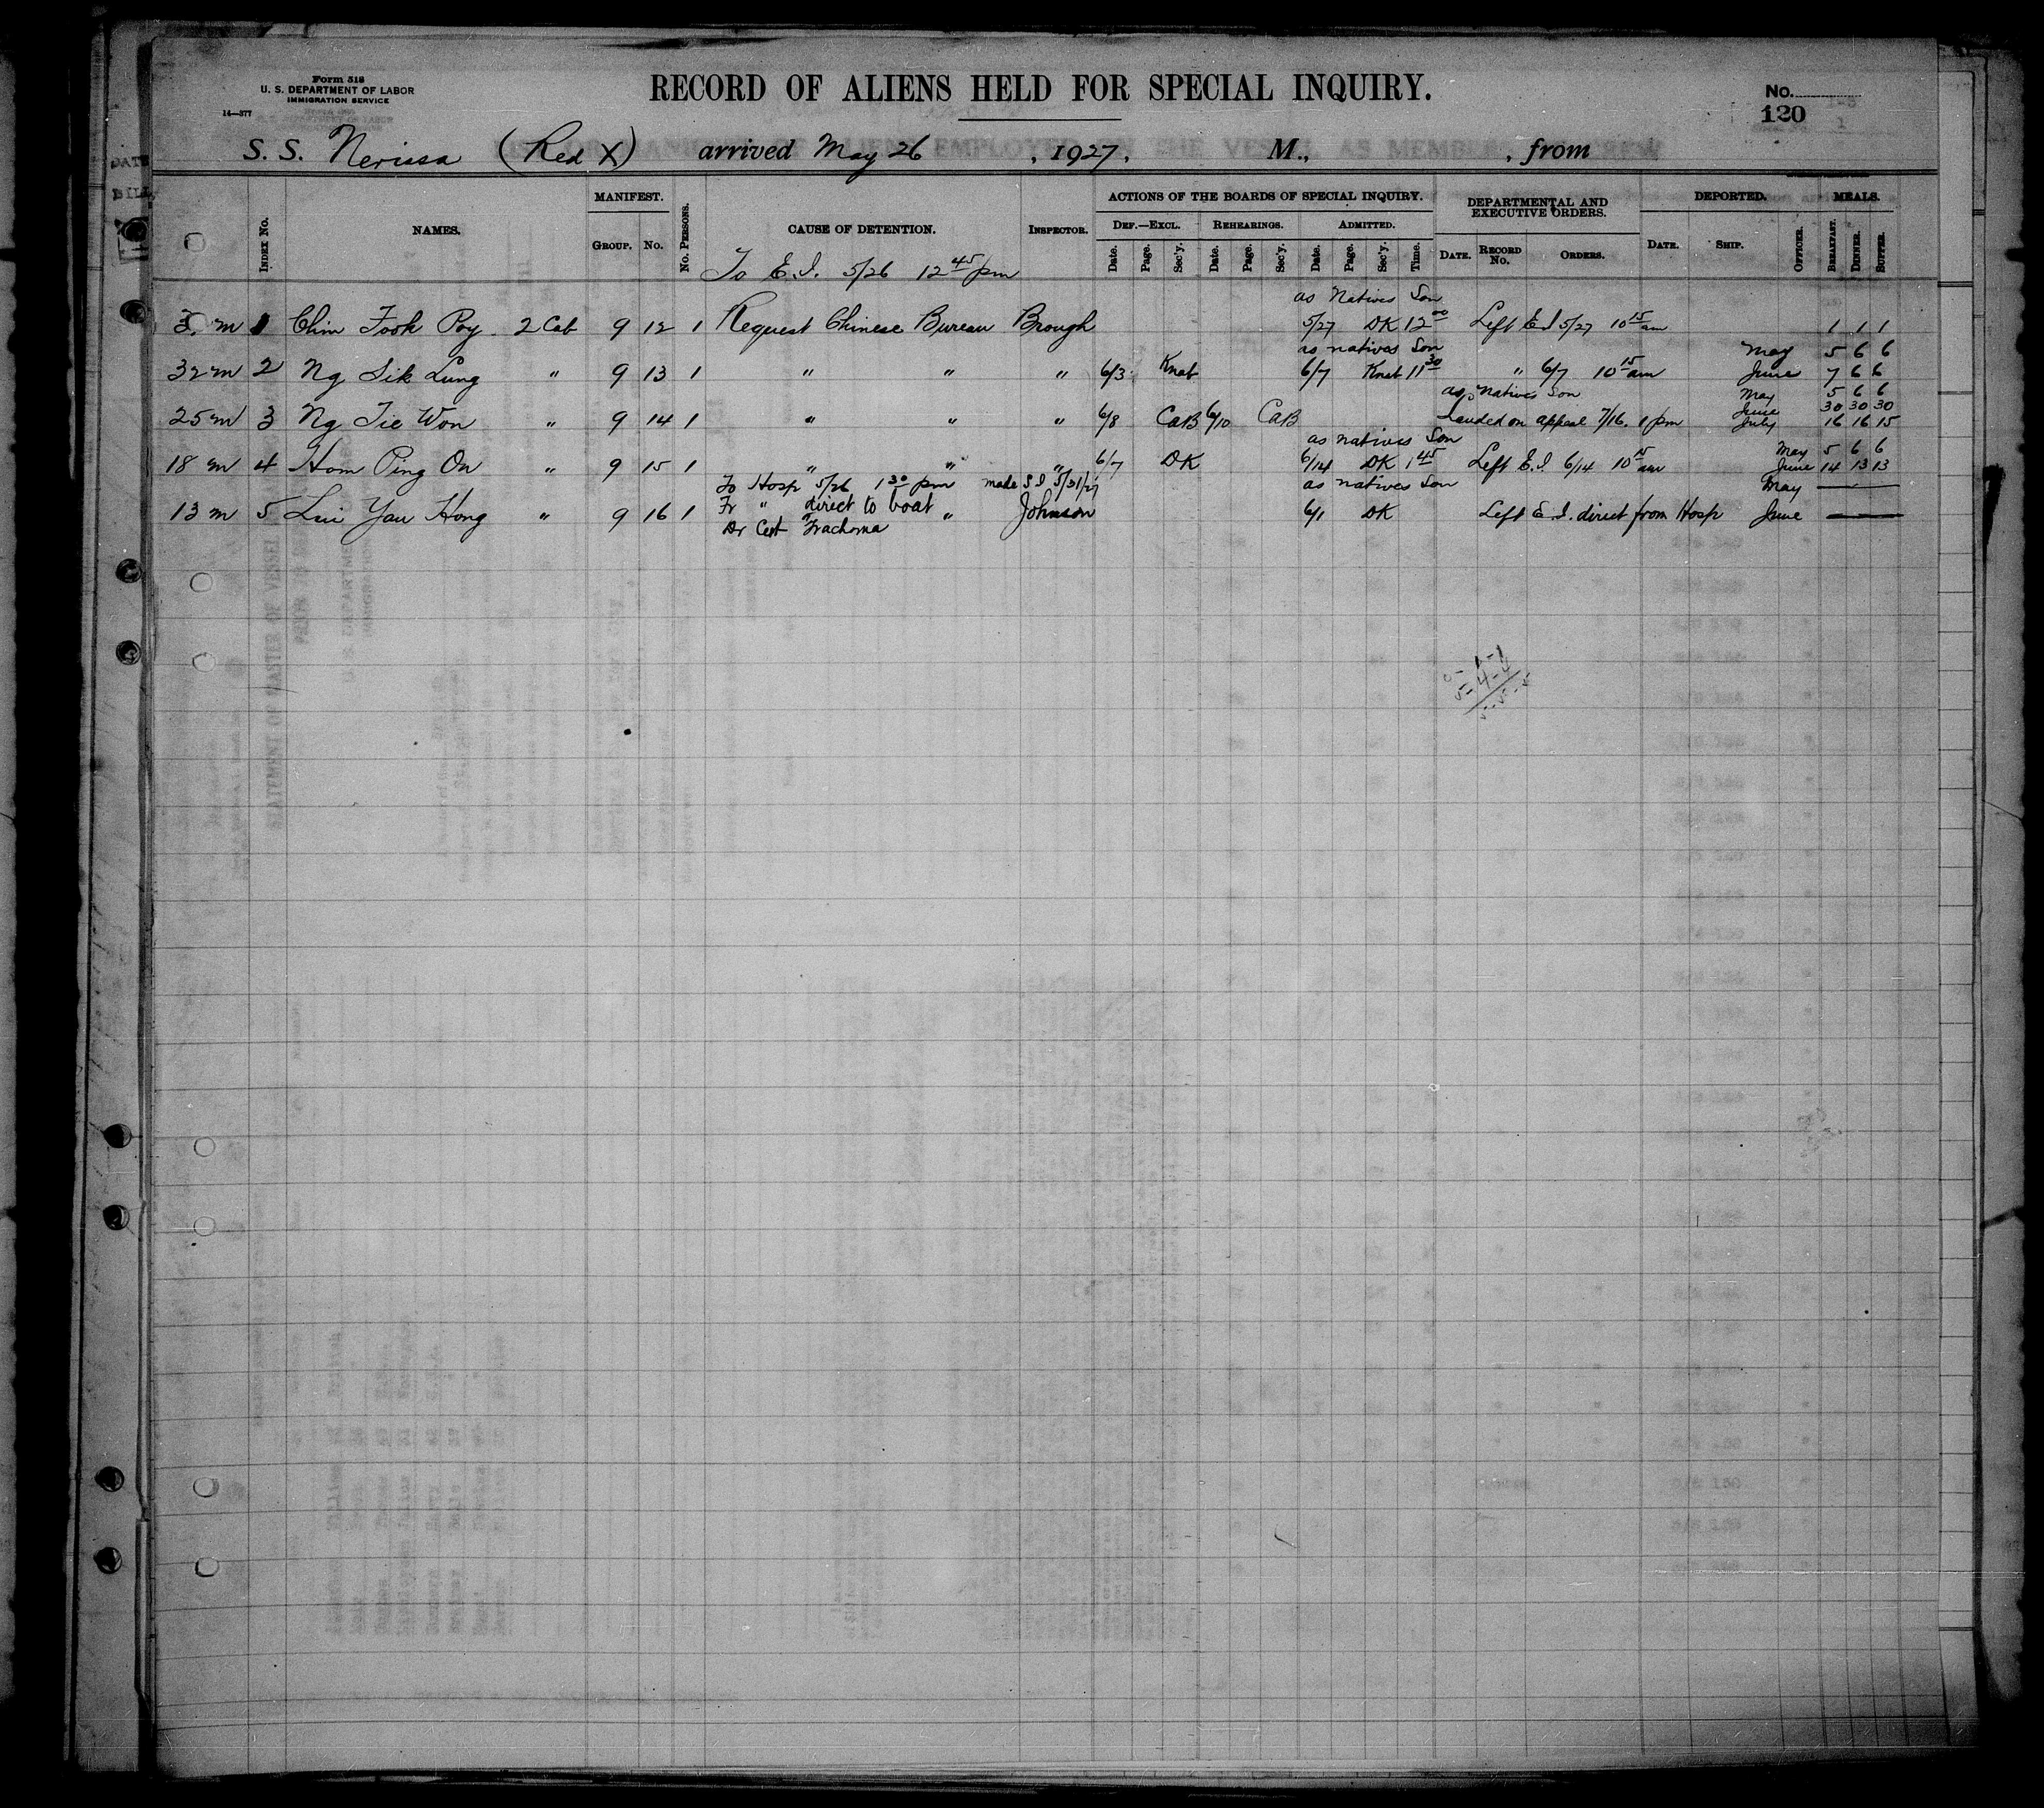 Form 518
U. S. DEPARTMENT OF LABOR
IMMIGRATION SERVICE
14—377
RECORD OF ALIENS HELD FOR SPECIAL INQUIRY.
No.
120
S. S. Nerissa (Red X) arrived May 26, 1927, M., , from
INDEX No. NAMES. MANIFEST. GROUP. No. No. PERSONS. CAUSE OF DETENTION. INSPECTOR. ACTIONS OF THE BOARDS OF SPECIAL INQUIRY. DEPARTMENTAL AND EXECUTIVE ORDERS. DEPORTED. MEALS.
DEF.—EXCL. REHEARINGS. ADMITTED.
Date. Page. Sec'y. Date. Page. Sec'y. Date. Page. Sec'y. Time. DATE. RECORD No. ORDERS. DATE. SHIP. OFFICER. BREAKFAST. DINNER. SUPPER.
To E. I. 5/26 12 45 pm
as Natives Son
m 1 Chin Fook Poy 2 Cab 9 12 1 Request Chinese Bureau Brough 5/27 DK 12 00 Left E I 5/27 10 15 am 1 1 1
as natives Son May 5 6 6
32 m 2 Ng Sik Lung " 9 13 1 " " " 6/3 Knat 6/7 Knat 11 30 " 6/7 10 15 am June 7 6 6
as Natives Son May 5 6 6
June 30 30 30
25 m 3 Ng Tie Won " 9 14 1 " " " 6/8 CaB 6/10 CaB Landed on appeal 7/16. 1 pm July 16 16 15
as natives Son May 5 6 6
18 m 4 Hom Ping On " 9 15 1 " " " 6/7 DK 6/14 DK 1 45 Left E. I. 6/14 10 15 am June 14 13 13
To Hosp 5/26 1 30 pm made S I 5/31/27 as natives Son May —
Fr " direct to boat
13 m 5 Lui Yau Hong " 9 16 1 " Johnson 6/1 DK Left E. I. direct from Hosp June —
Dr Cert Trachoma